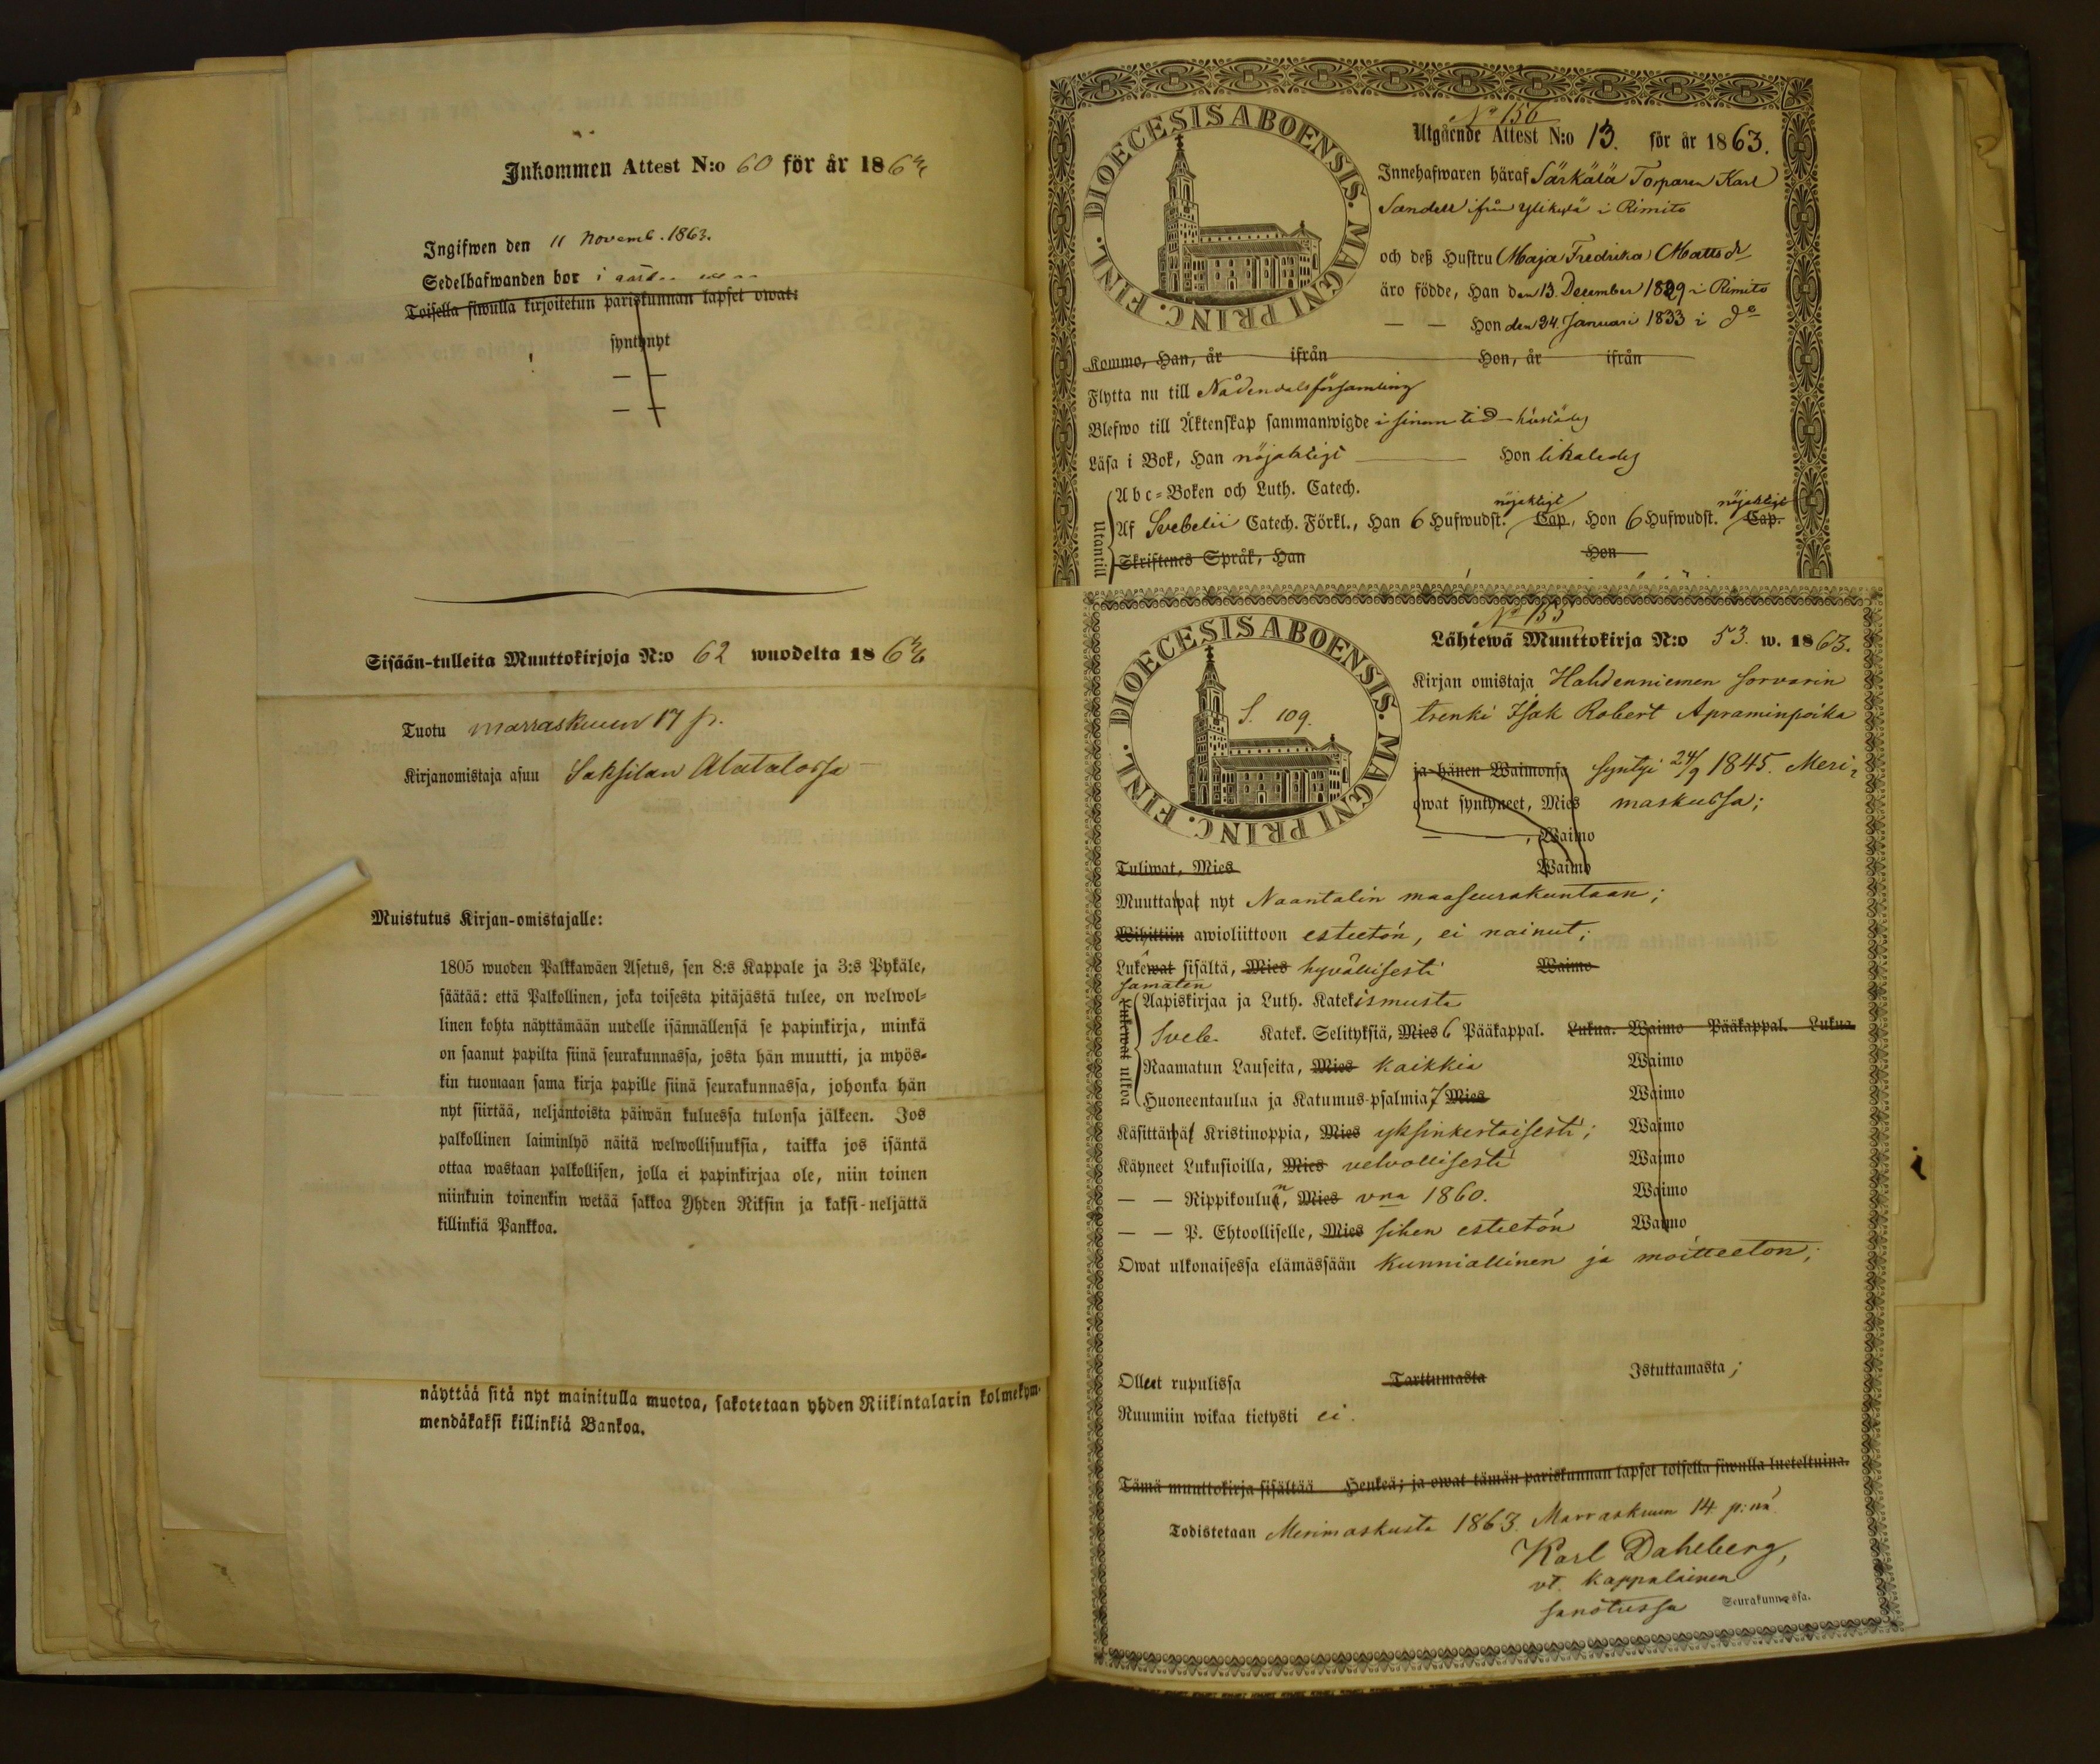 Inkommen Attest N:o 60 för år 186
Ingifwen den 11 Novemb. 1863.
Sedelhafwanden bor i
Toisella siwulla kirjoitetun pariskunnan lapset owat:
syntynyt
— —
— —
Sisään-tulleita Muuttokirjoja N:o 62 wuodelta 186
Tuotu marraskuun 17 p.
Kirjanomistaja asuu Saksilan Alatalossa
Muistutus Kirjan-omistajalle:
1805 wuoden Palkkawäen Asetus, sen 8:s Kappale ja 3:s Pykäle,
säätää: että Palkollinen, joka toisesta pitäjästä tulee, on welwol-
linen kohta näyttämään uudelle isännällensä se papinkirja, minkä
on saanut papilta siinä seurakunnassa, josta hän muutti, ja myös-
kin tuomaan sama kirja papille siinä seurakunnassa, johonka hän
nyt siirtää, neljäntoista päiwän kuluessa tulonsa jälkeen. Jos
palkollinen laiminlyö näitä welwollisuuksia, taikka jos isäntä
ottaa wastaan palkollisen, jolla ei papinkirjaa ole, niin toinen
niinkuin toinenkin wetää sakkoa Yhden Riksin ja kaksi-neljättä
killinkiä Pankkoa.
näyttää sitä nyt mainitulla muotoa, sakotetaan yhden Riikintalarin kolmekym-
mendäkaksi killinkiä Bankoa.
No 156
Utgående Attest N:o 13. för år 1863.
Innehafwaren häraf Särkälä Torparen Karl
Sandell ifrån Ylikylä i Rimito
och deß Hustru Maja Fredrika Matts dr
äro födde, Han den 13. December 1829 i Rimito
— — Hon den 24. Januari 1833 i do
Kommo, Han, år ifrån Hon, år ifrån
Flytta nu till Nådendals församling
Blefwo till Äktenskap sammanwigde i sinom tid härstädes
Läsa i Bok, Han nöjaktigt Hon likaledes
Abc-Boken och Luth. Catech.
Utantill
nöjaktigt nöjaktigt
Af Svebelii Catech. Förkl., Han 6 Hufwudst. Cap., Hon 6 Hufwudst. Cap.
Skriftenes Språk, Han Hon
DIOECESIS ABOENSIS. MAGNI PRINC. FINL.
No 155
Lähtewä Muuttokirja N:o 53. w. 1863.
DIOECESIS ABOENSIS. MAGNI PRINC. FINL.
S. 109.
Kirjan omistaja Hahdenniemen sorvarin
trenki Isak Robert Apraminpoika
ja hänen Waimonsa syntyi 24/9 1845. Meri-
owat syntyneet, Mies maskussa;
— , Waimo
Tuliwat, Mies Waimo
Muuttawat nyt Naantalin maaseurakuntaan;
Wihittiin awioliittoon esteetön, ei nainut;
Lukewat sisältä, Mies hyvällisesti Waimo
samaten
Lukewat ulkoa
Aapiskirjaa ja Luth. Katekismusta
Sveb. Katek. Selityksiä, Mies 6 Pääkappal. Lukua. Waimo Pääkappal. Lukua
Raamatun Lauseita, Mies kaikkia Waimo
Huoneentaulua ja Katumus-psalmia 7 Mies Waimo
Käsittäwät Kristinoppia, Mies yksinkertaisesti; Waimo
Käyneet Lukusioilla, Mies velvollisesti Waimo
— — Rippikoulun, Mies vna 1860. Waimo
— — P. Ehtoolliselle, Mies sihen esteetön Waimo
Owat ulkonaisessa elämässään kunniallinen ja moitteeton;
Olleet rupulissa Tarttumasta Istuttamasta;
Ruumiin wikaa tietysti ei.
Tämä muuttokirja sisältää Henkeä; ja owat tämän pariskunnan lapset toisella siwulla lueteltuina.
Todistetaan Merimaskusta 1863. Marraskuun 14. p:nä
Karl Dahlberg,
vt. kappalainen
sanotussa Seurakunnassa.